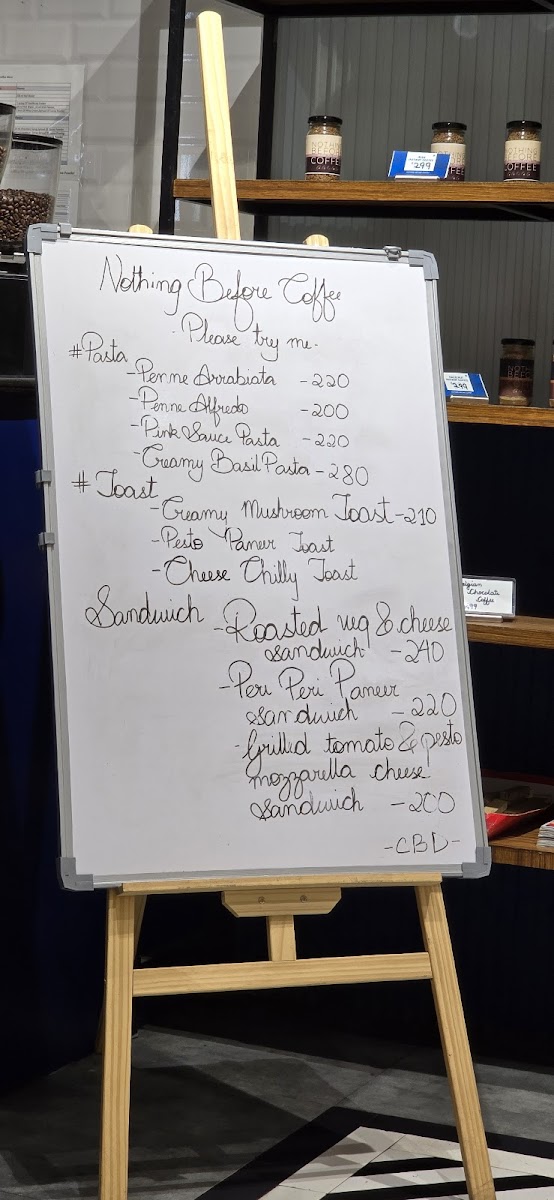 Nothing Before Coffee
- Please try me -
#Pasta
- Penne Arrabiata - 220
- Penne Alfredo - 200
- Pink Sauce Pasta - 220
- Creamy Basil Pasta - 280
# Toast
- Creamy Mushroom Toast - 210
- Pesto Paneer Toast
- Cheese Chilly Toast
Sandwich - Roasted veg & cheese
sandwich - 240
- Peri Peri Paneer
sandwich - 220
- Grilled tomato & pesto
mozzarella cheese
sandwich - 200
- CBD -
NOTHING
BEFORE
COFFEE
299
299
Chocolate
Coffee